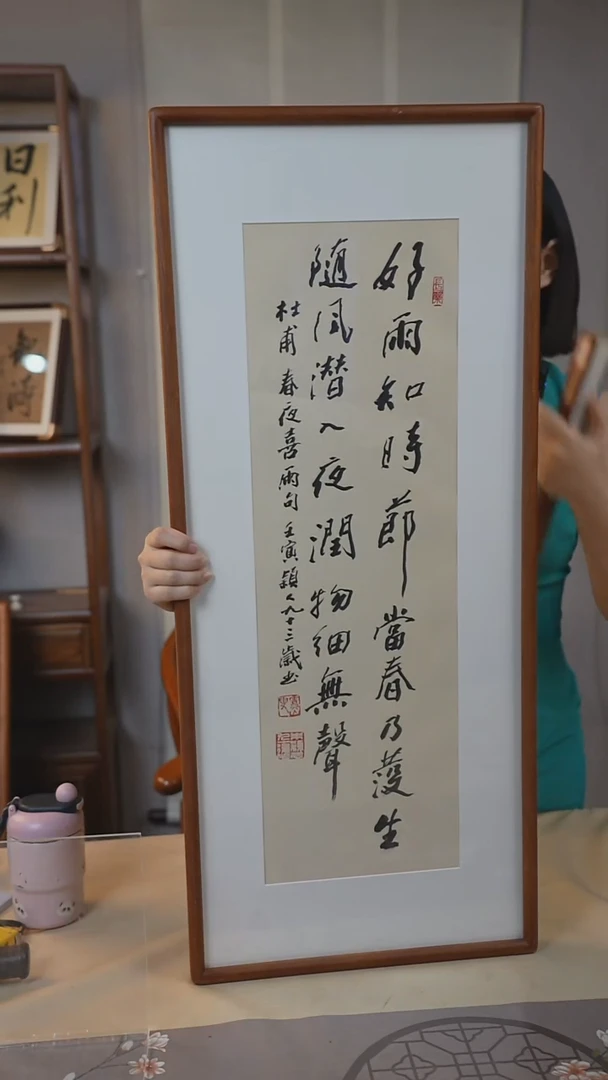 好雨知時節當春乃發生
隨風潛入夜潤物細無聲
杜甫春夜喜雨句壬寅九十三歲书
日利